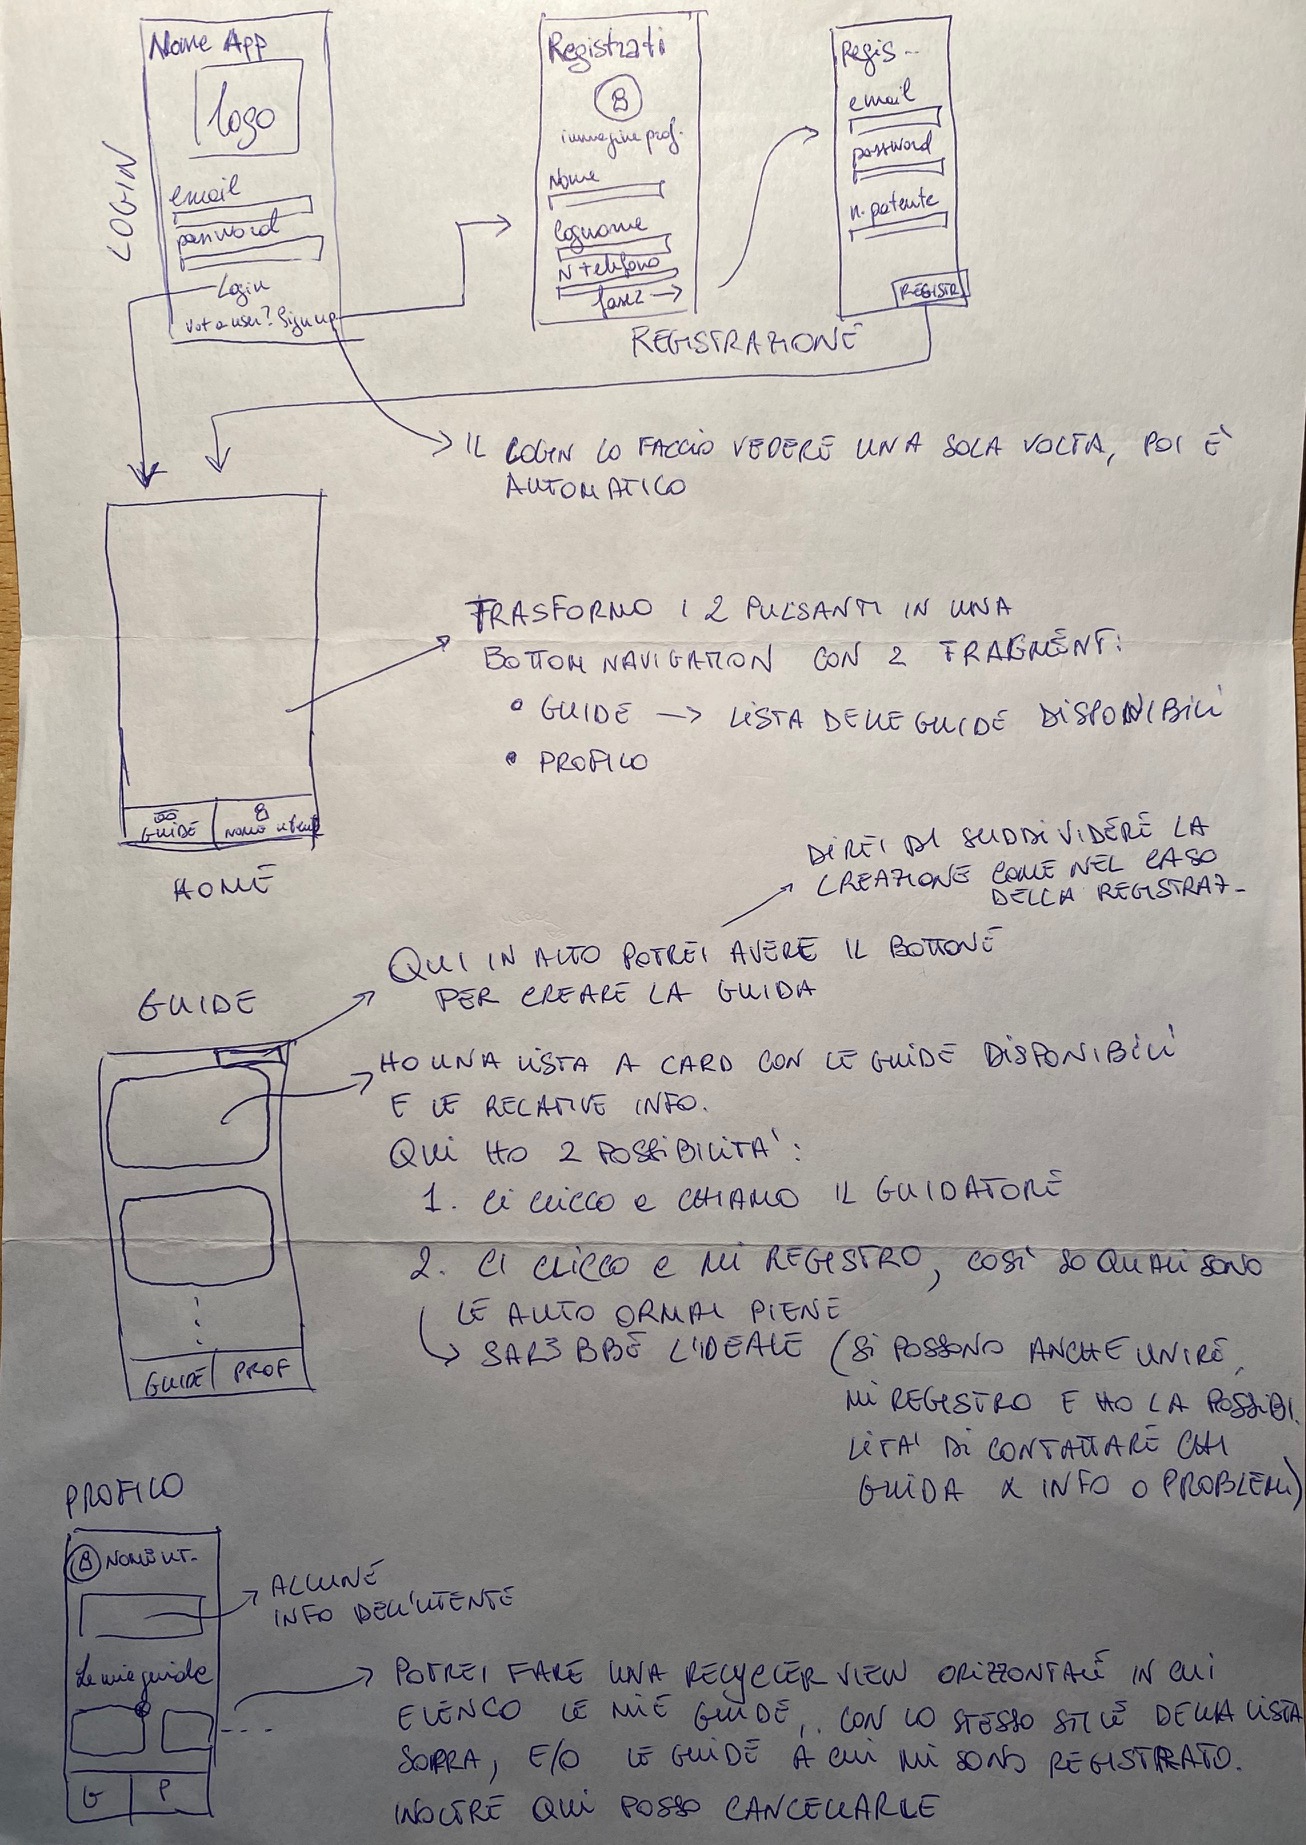 Nome App
logo
LOGIN
email
password
Login
Not a user? Sign up
Registrati
immagine prof.
Nome
Cognome
N telefono
fase 2 →
Regis...
email
password
n. patente
REGISTR
REGISTRAZIONE
IL LOGIN LO FACCIO VEDERE UNA SOLA VOLTA, POI E'
AUTOMATICO
TRASFORMO I 2 PULSANTI IN UNA
BOTTOM NAVIGATION CON 2 FRAGMENT:
• GUIDE → LISTA DELLE GUIDE DISPONIBILI
• PROFILO
GUIDE
NOME utente
HOME
DIREI DI SUDDIVIDERE LA
CREAZIONE COME NEL CASO
DELLA REGISTRAZ-
QUI IN ALTO POTREI AVERE IL BOTTONE
PER CREARE LA GUIDA
GUIDE
HO UNA LISTA A CARD CON LE GUIDE DISPONIBILI
E LE RELATIVE INFO.
QUI HO 2 POSSIBILITA':
1. CI CLICCO E CHIAMO IL GUIDATORE
2. CI CLICCO E MI REGISTRO, COSI' SO QUALI SONO
LE AUTO ORMAI PIENE
→ SAREBBE L'IDEALE (SI POSSONO ANCHE UNIRE,
MI REGISTRO E HO LA POSSIBI
LITA' DI CONTATTARE CHI
GUIDA X INFO O PROBLEMI)
GUIDE
PROF
PROFILO
NOME UT-
ALCUNE
INFO DELL'UTENTE
Le mie guide
POTREI FARE UNA RECYCLER VIEW ORIZZONTALE IN CUI
ELENCO LE MIE GUIDE, CON LO STESSO STILE DELLA LISTA
SOPRA, E/O LE GUIDE A CUI MI SONO REGISTRATO.
INOLTRE QUI POSSO CANCELLARLE
G
P